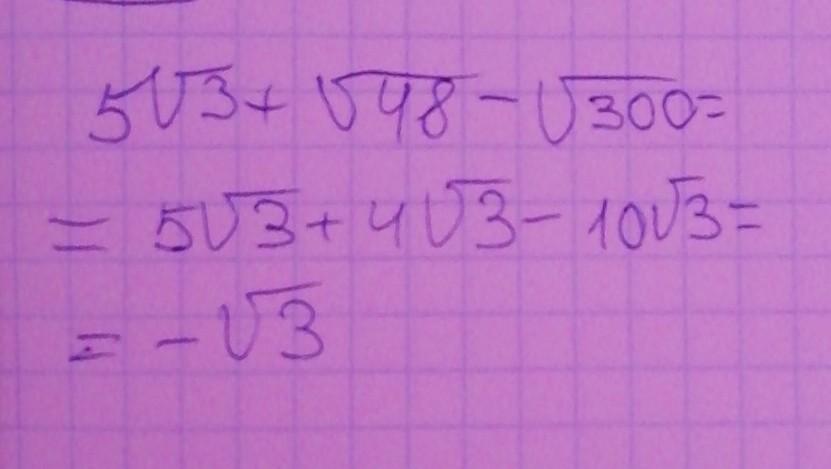 5√3 + √48 - √300 =
= 5√3 + 4√3 - 10√3 =
= - √3